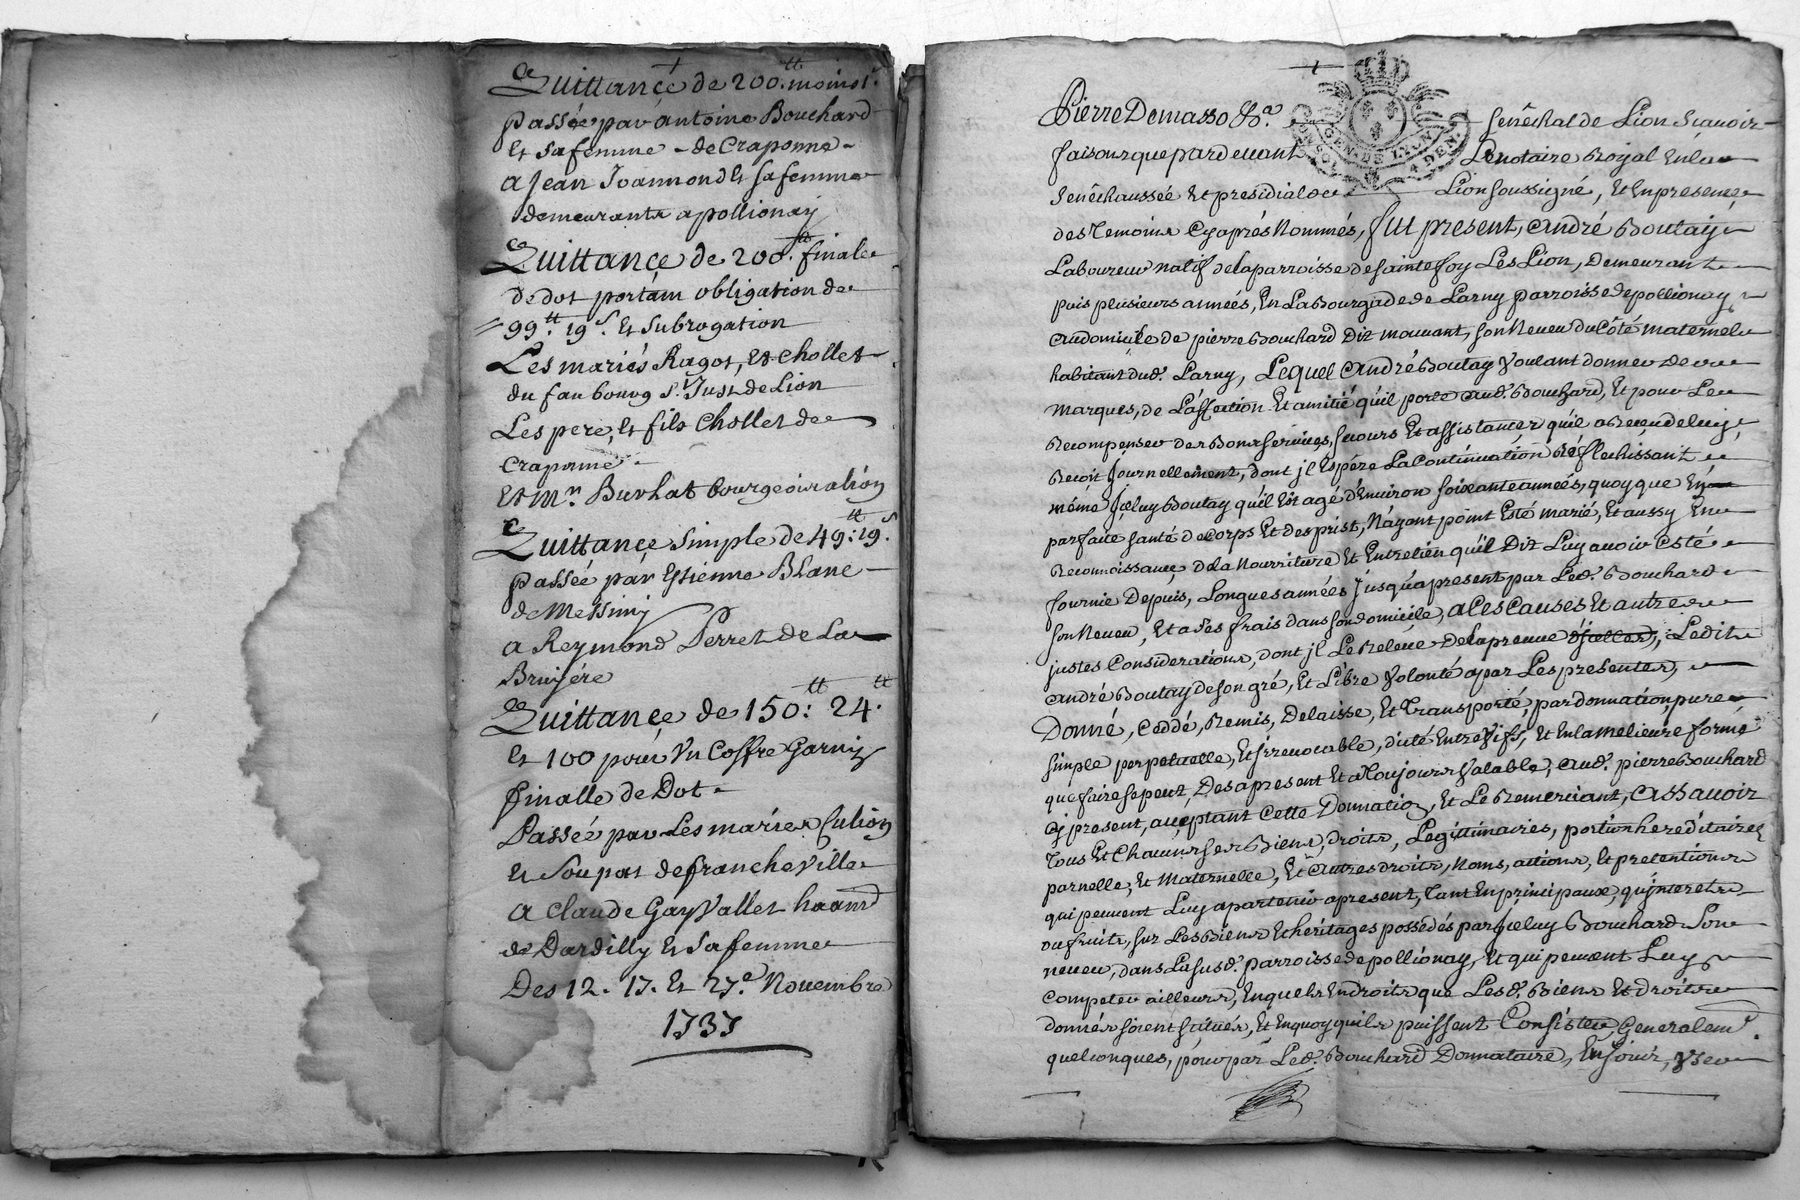 Quittance de 200.tt moins 1s.
passée par antoine Bouchard
Et sa femme - de Craponne -
a Jean Joannond Et sa femme
demeurants a pollionay
Quittance de 200.tt finale
de dot portam obligation de
99.tt 19.s Et subrogation
Les mariés Ragot, Et Chollet
du faubourg St. Just de Lion
Les pere, Et fils Chollet de
Craponne -
Et Mr. Burhat bourgeois a lion
Quittance simple de 49:tt 19.s
passée par Estienne Blanc
de Messimi
a Reymond Perret de La
Bruyére
Quittance de 150:tt 24.tt
Et 100 pour Un Coffre Garny
finalle de Dot -
Passée par Les mariés
Et Soupat de francheville
a Claude Gay Vallet
de Dardilly Et sa femme
Des 12. 17. Et 27.e Novembre
1737
Pierre Demasso &a. Senéchal de Lion Scauoir
faisons que pardeuant Le notaire Royal En la
Senéchaussée Et presidial de Lion soussigné, Et En presence
des Temoins Cy aprés Nommés, fut present, André Boutay
Laboureur natif de la parroisse de sainte foy Les Lion, demeurant
puis plusieurs années, En La Bourgade de Larny parroisse de pollionay
au domicile de pierre Bouchard dit mauant, son Neveu du Côté maternel
habitant dud. Larny, Lequel André Boutay Voulant donner de
marques, de L'affection Et amitié qu'il porte aud. Bouchard, Et pour Le
Recompenser des Bons services, secours Et assistances qu'il a Reçeu de luy,
Recoit journellement, dont jl Espére La Continuation Réflechissant
méme jceluy Boutay qu'il Est agé d'Enuiron soixante années, quoy que En
parfaite santé de corps Et desprist, N'ayant point Esté marié, Et aussy En
Reconnoissance de la Nourriture Et Entretien qu'il Dit Luy auoir Esté
fournie Depuis, Longues années jusqu'a present par Led. Bouchard
son Neveu, Et a ses frais dans son domicile, a Ces Causes Et autres
justes Considerations, dont jl Le Releue De la preuue d'jcelles, Ledit
André Boutay de son gré, Et Libre Volonté a par Les presentes,
Donné, Ceddé, Remis, Delaisse, Et Transporté, par donnation pure
simple perpetuelle, Et jrreuocable, ditte Entre Vifs, Et En la melieure forme
que faire se peut, Des apresent Et a Toujours Valable, aud. pierre Bouchard
Cy present, acceptant Cette Donnation, Et Le Remerciant, Assauoir
Tous Et Chacuns ses Biens, droits, Legittimaires, portion hereditaires
parnelle, Et Maternelle, Et Autres droits, Noms, actions, Et pretentions
qui peuuent Luy apartenir apresent, Tant En principaux, qu'jnterets
ou fruits, sur Les Biens Et héritages possédés par jceluy Bouchard son
neueu, dans La susd. parroisse de pollionay, Et qui peuuent Luy
Competer ailleurs, En quels Endroits que Lesd. Biens Et droits
donnés soient situés, Et En quoy qu'ils puissent Consister, Generalemt.
quelconques, pour par Led. Bouchard Donnataire, En jouir, User